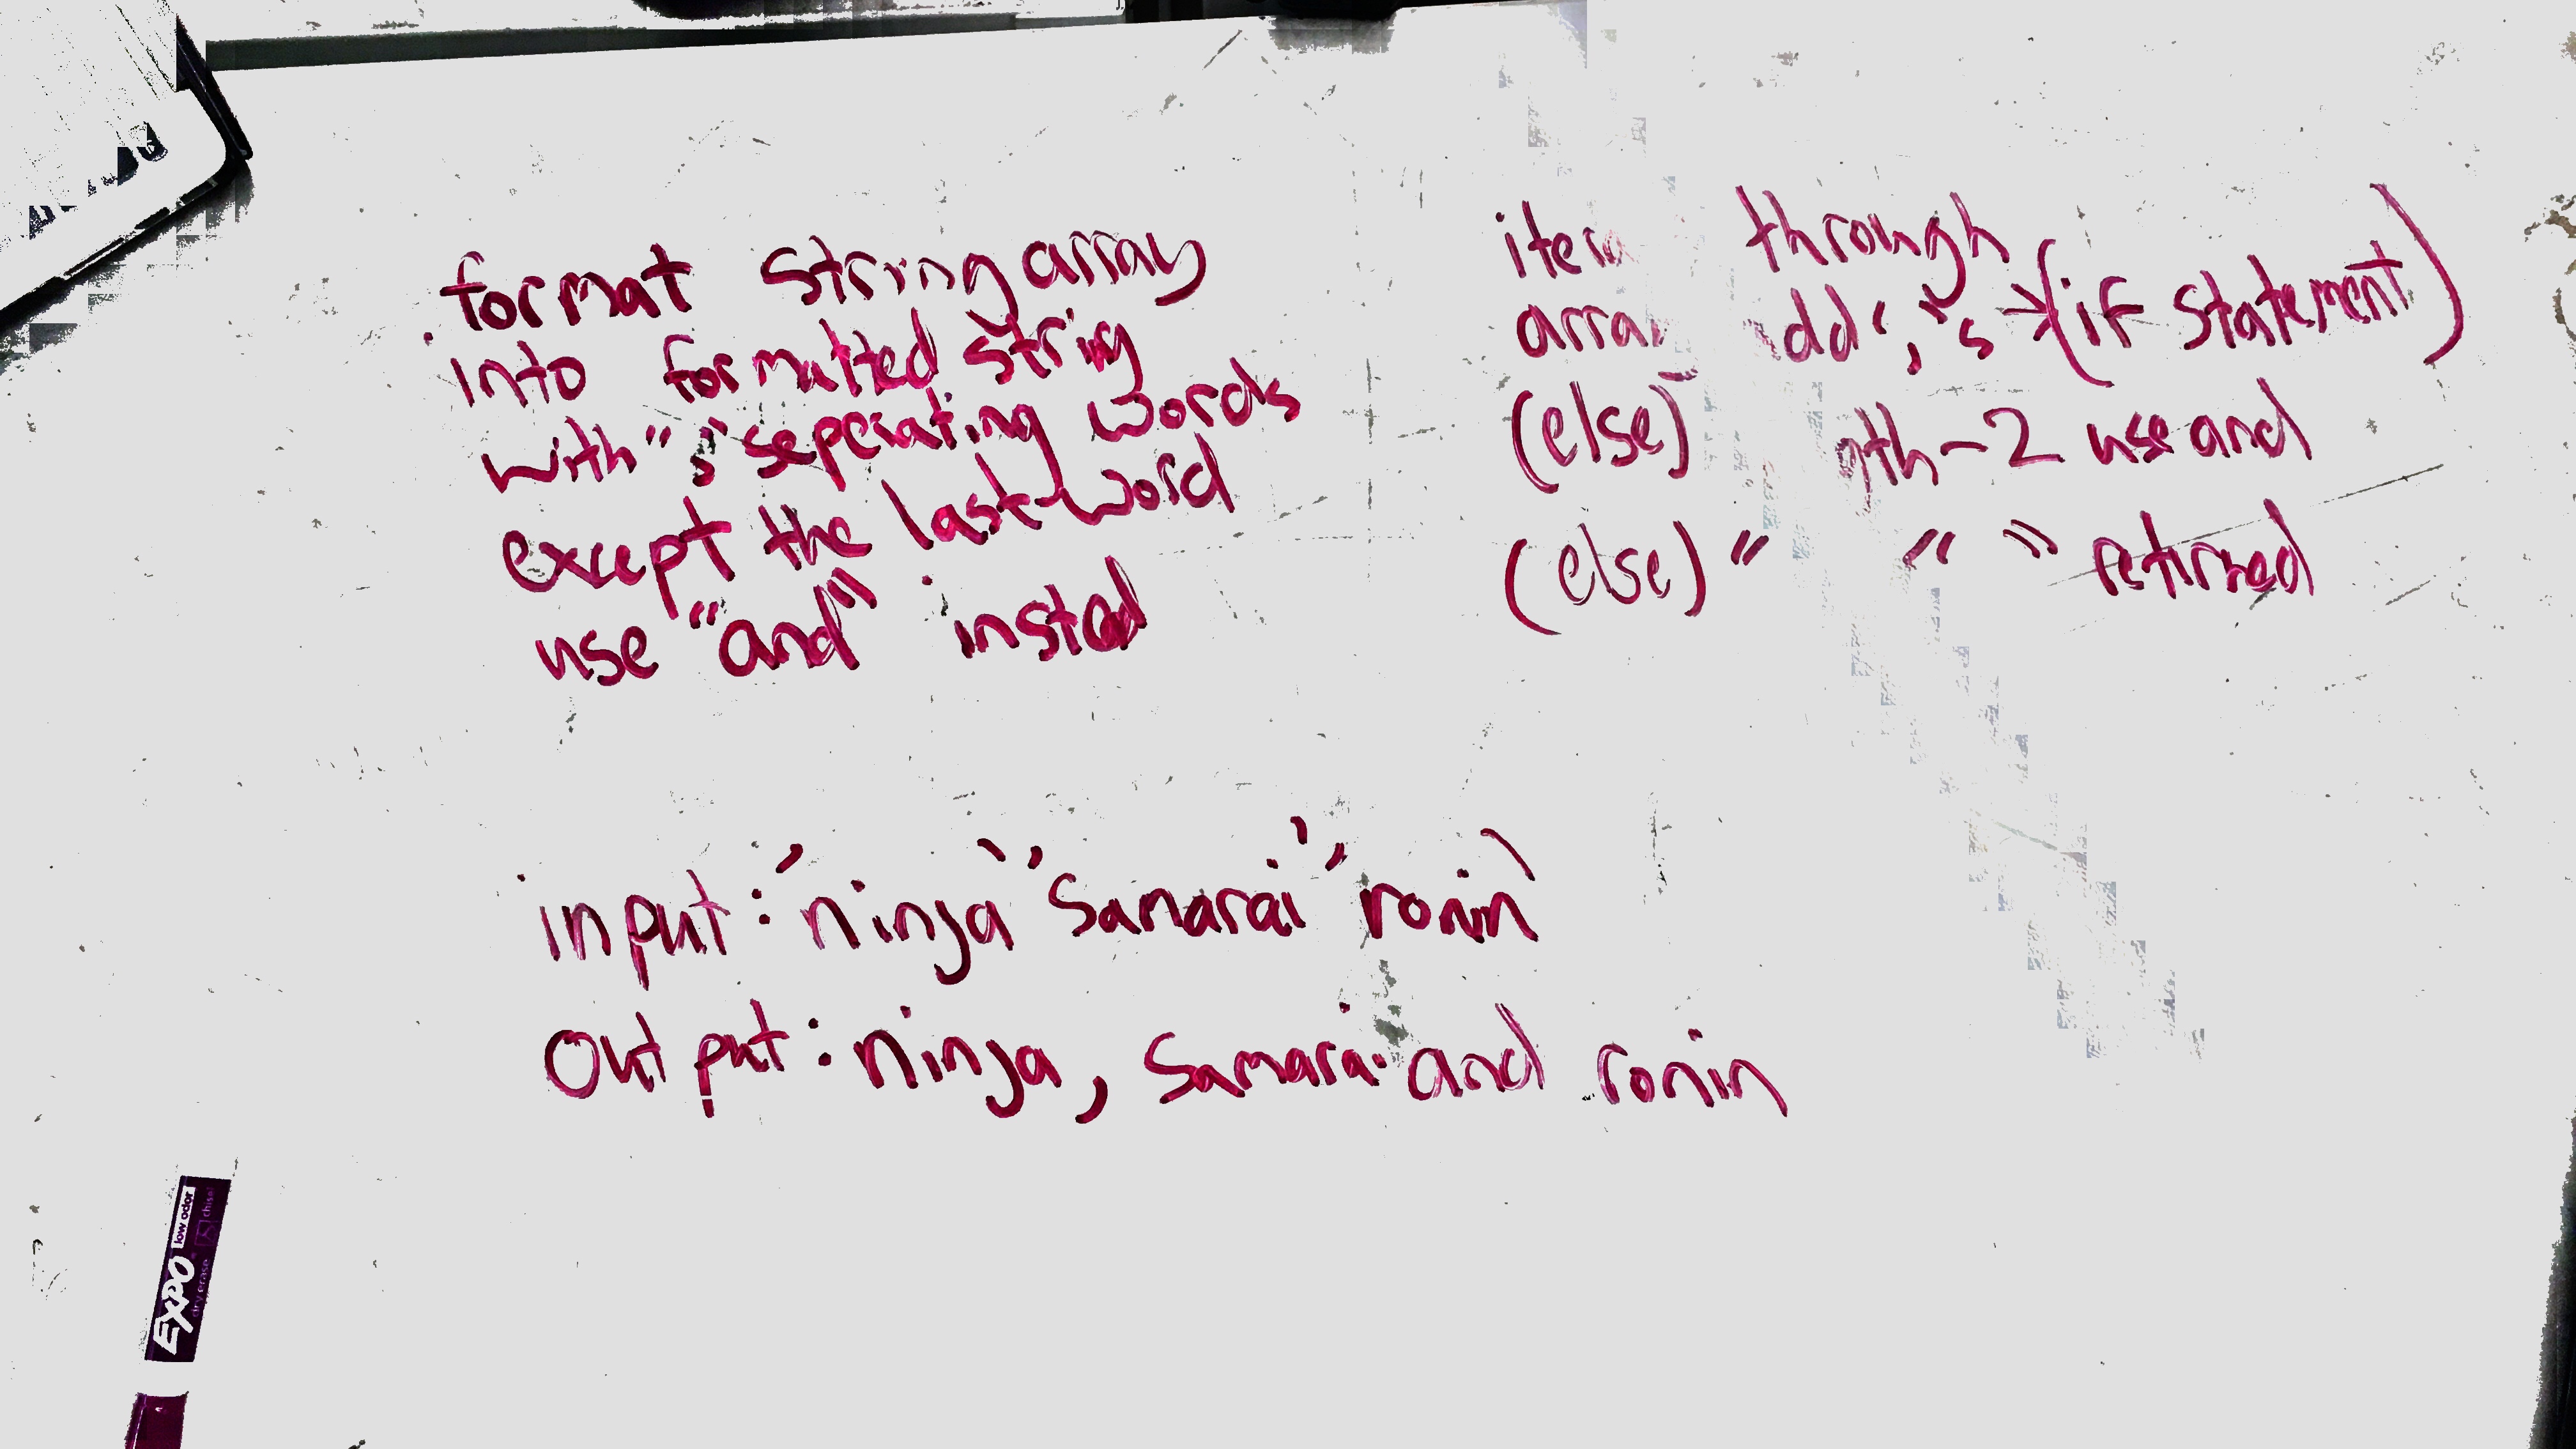 format String array
into formatted string
with "," seperating words
except the last word
use "and" insted
through
add ','s → (if statement)
(else) -2 use and
(else) " " " returned
input: 'ninja' 'Samarai' 'ronin'
Output: ninja, Samarai and ronin
EXPO
low odor
chisel
dry erase